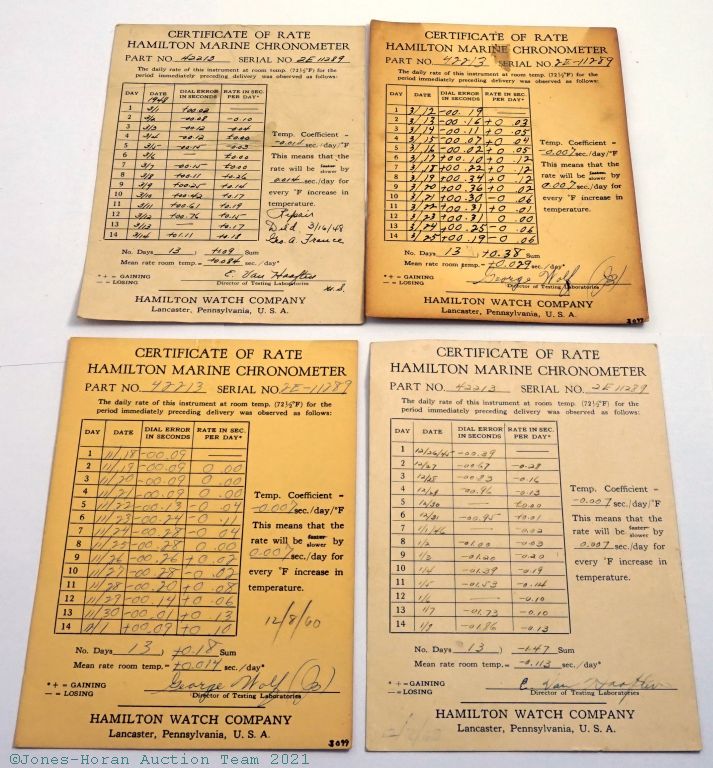 CERTIFICATE OF RATE
HAMILTON MARINE CHRONOMETER
PART NO. 42213 SERIAL NO. 2E 11289
The daily rate of this instrument at room temp. (72½°F) for the
period immediately preceding delivery was observed as follows:
DAY DATE DIAL ERROR IN SECONDS RATE IN SEC. PER DAY*
1948
1 3/1 +00.02 —
2 3/2 -00.08 -0.10
3 3/3 -00.12 -0.04
4 3/4 -00.12 ±0.00
5 3/5 -00.15 -0.03
6 3/6 — ±0.00
7 3/7 -00.15 ±0.00
8 3/8 +00.11 +0.26
9 3/9 +00.25 +0.14
10 3/10 +00.42 +0.17
11 3/11 +00.61 +0.19
12 3/12 +00.76 +0.15
13 3/13 — +0.17
14 3/14 +01.11 +0.18
Temp. Coefficient =
-0.014 sec./day/°F
This means that the
rate will be faster slower by
0.014 sec./day for
every °F increase in
temperature.
Repair
Del'd 3/16/48
Geo. A. France
No. Days 13 ; +1.09 Sum
Mean rate room temp. = +0.084 sec./day*
* + = GAINING
— = LOSING
E. Van Haaften
Director of Testing Laboratories
HAMILTON WATCH COMPANY
Lancaster, Pennsylvania, U. S. A.
CERTIFICATE OF RATE
HAMILTON MARINE CHRONOMETER
PART NO. 42213 SERIAL NO. 2E-11289
The daily rate of this instrument at room temp. (72½°F) for the
period immediately preceding delivery was observed as follows:
DAY DATE DIAL ERROR IN SECONDS RATE IN SEC. PER DAY*
1 3/12 -00.19 —
2 3/13 -00.16 +0.03
3 3/14 -00.11 +0.05
4 3/15 -00.07 +0.04
5 3/16 -00.02 +0.05
6 3/17 +00.10 +0.12
7 3/18 +00.22 +0.12
8 3/19 +00.34 +0.12
9 3/20 +00.36 +0.02
10 3/21 +00.30 -0.06
11 3/22 +00.31 +0.01
12 3/23 +00.31 0.00
13 3/24 +00.25 -0.06
14 3/25 +00.19 -0.06
Temp. Coefficient =
-0.007 sec./day/°F
This means that the
rate will be faster slower by
0.007 sec./day for
every °F increase in
temperature.
No. Days 13 ; +0.38 Sum
Mean rate room temp. = +0.029 sec./day*
* + = GAINING
— = LOSING
George Wolf (JB)
Director of Testing Laboratories
HAMILTON WATCH COMPANY
Lancaster, Pennsylvania, U. S. A.
3099
CERTIFICATE OF RATE
HAMILTON MARINE CHRONOMETER
PART NO. 42213 SERIAL NO. 2E-11289
The daily rate of this instrument at room temp. (72½°F) for the
period immediately preceding delivery was observed as follows:
DAY DATE DIAL ERROR IN SECONDS RATE IN SEC. PER DAY*
1 11/18 -00.09 —
2 11/19 -00.09 0.00
3 11/20 -00.09 0.00
4 11/21 -00.09 0.00
5 11/22 -00.13 -0.04
6 11/23 -00.24 -0.11
7 11/24 -00.28 -0.04
8 11/25 -00.28 0.00
9 11/26 -00.26 +0.02
10 11/27 -00.28 -0.02
11 11/28 -00.20 +0.08
12 11/29 -00.14 +0.06
13 11/30 -00.01 +0.13
14 12/1 +00.09 +0.10
Temp. Coefficient =
-0.007 sec./day/°F
This means that the
rate will be faster slower by
0.007 sec./day for
every °F increase in
temperature.
12/8/60
No. Days 13 ; +0.18 Sum
Mean rate room temp. = +0.014 sec./day*
* + = GAINING
— = LOSING
George Wolf (JB)
Director of Testing Laboratories
HAMILTON WATCH COMPANY
Lancaster, Pennsylvania, U. S. A.
3099
CERTIFICATE OF RATE
HAMILTON MARINE CHRONOMETER
PART NO. 42213 SERIAL NO. 2E 11289
The daily rate of this instrument at room temp. (72½°F) for the
period immediately preceding delivery was observed as follows:
DAY DATE DIAL ERROR IN SECONDS RATE IN SEC. PER DAY*
1 12/26/45 -00.39 —
2 12/27 -00.67 -0.28
3 12/28 -00.83 -0.16
4 12/29 -00.96 -0.13
5 12/30 — ±0.00
6 12/31 -00.95 +0.01
7 1/1/46 — -0.02
8 1/2 -01.00 -0.03
9 1/3 -01.20 -0.20
10 1/4 -01.39 -0.19
11 1/5 -01.53 -0.14
12 1/6 — -0.10
13 1/7 -01.73 -0.10
14 1/8 -01.86 -0.13
Temp. Coefficient =
-0.007 sec./day/°F
This means that the
rate will be faster slower by
0.007 sec./day for
every °F increase in
temperature.
No. Days 13 ; -1.47 Sum
Mean rate room temp. = -0.113 sec./day*
* + = GAINING
— = LOSING
E. Van Haaften
Director of Testing Laboratories
HAMILTON WATCH COMPANY
Lancaster, Pennsylvania, U. S. A.
©Jones-Horan Auction Team 2021